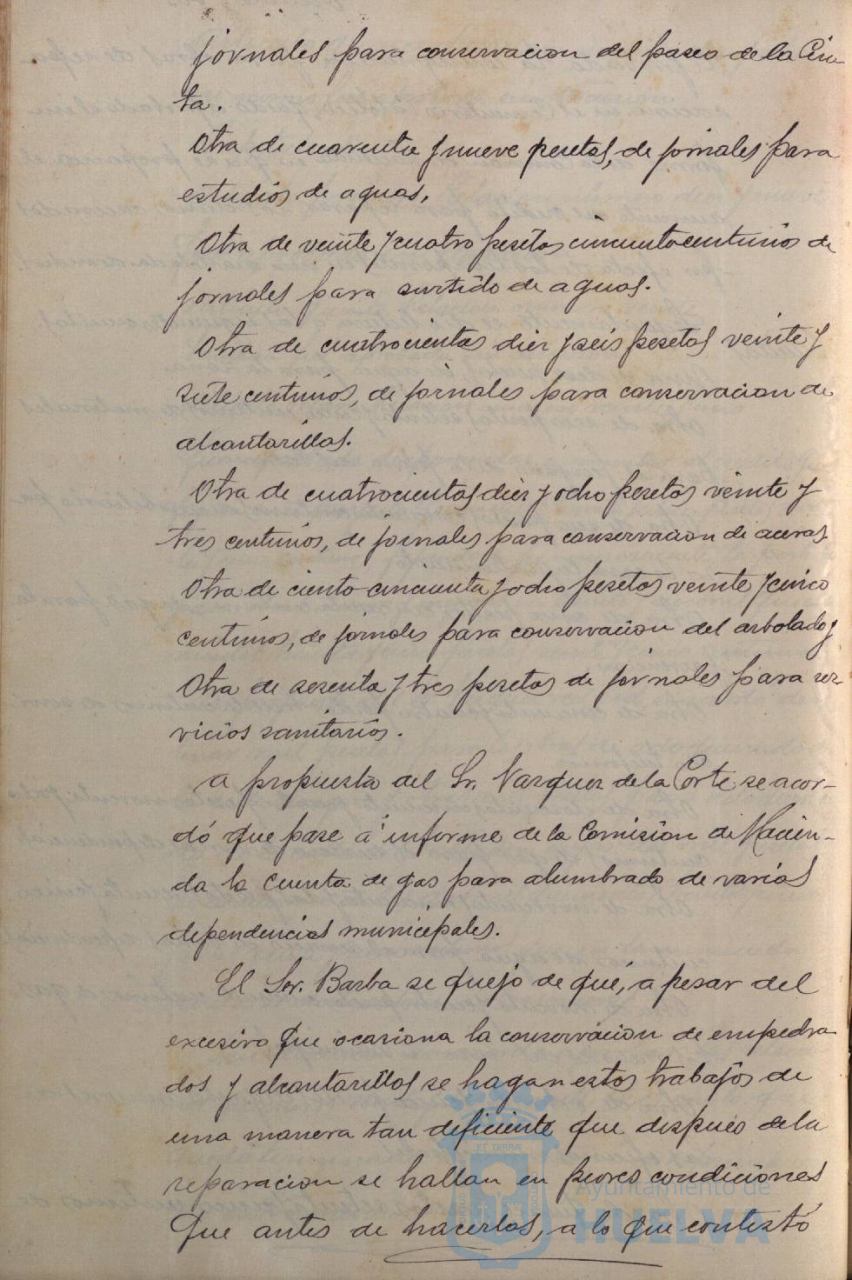 jornales para conservacion del paseo de la Cin-
ta.
Otra de cuarenta y nueve pesetas, de jornales para
estudios de aguas,
Otra de veinte y cuatro pesetas cincuenta centimos de
jornales para surtido de aguas.
Otra de cuatrocientas diez y seis pesetas veinte y
siete centimos, de jornales para conservacion de
alcantarillas.
Otra de cuatrocientas diez y ocho pesetas veinte y
tres centimos, de jornales para conservacion de aceras
Otra de ciento cincuenta y ocho pesetas veinte y cinco
centimos, de jornales para conservacion del arbolado y
Otra de sesenta y tres pesetas de jornales para ser-
vicios sanitarios.
A propuesta del Sr. Vazquez de la Corte se acor-
dó que pase á informe de la Comision de Hacien-
da la cuenta de gas para alumbrado de varias
dependencias municipales.
El Sor. Barba se quejo de qué, a pesar del
excesivo que ocasiona la conservacion de empedra
dos y alcantarillas se hagan estos trabajos de
una manera tan deficiente que despues de la
reparacion se hallan en peores condiciones
que antes de hacerlas, a lo que contestó
Ayuntamiento de
HUELVA